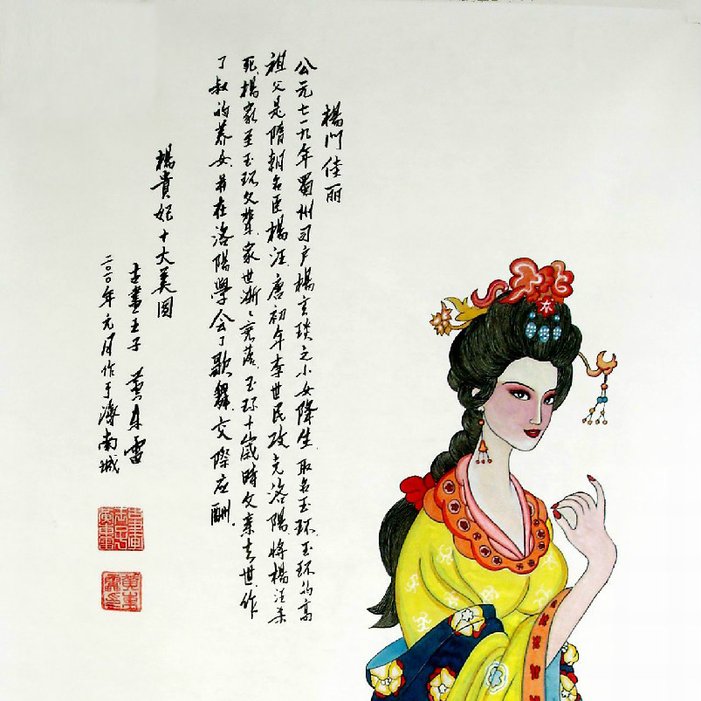 楊门佳丽
公元七一九年蜀州司户楊玄琰之小女降生.取名玉环.玉环的高
祖父是隋朝名臣楊汪.唐初年李世民攻克洛陽将楊汪杀
死.楊家至玉环父辈.家世渐渐衰落.玉环十歲時父亲去世.作
了叔的养女.并在洛陽學会了歌舞.交際应酬.
楊貴妃十大美图
古畫王子 黄
二〇一〇年元月作于 南城